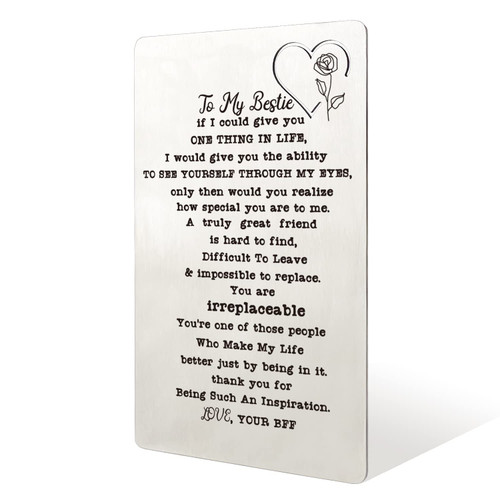 To My Bestie
if I could give you
ONE THING IN LIFE,
I would give you the ability
TO SEE YOURSELF THROUGH MY EYES,
only then would you realize
how special you are to me.
A truly great friend
is hard to find,
Difficult To Leave
& impossible to replace.
You are
irreplaceable
You're one of those people
Who Make My Life
better just by being in it.
thank you for
Being Such An Inspiration.
LOVE, YOUR BFF